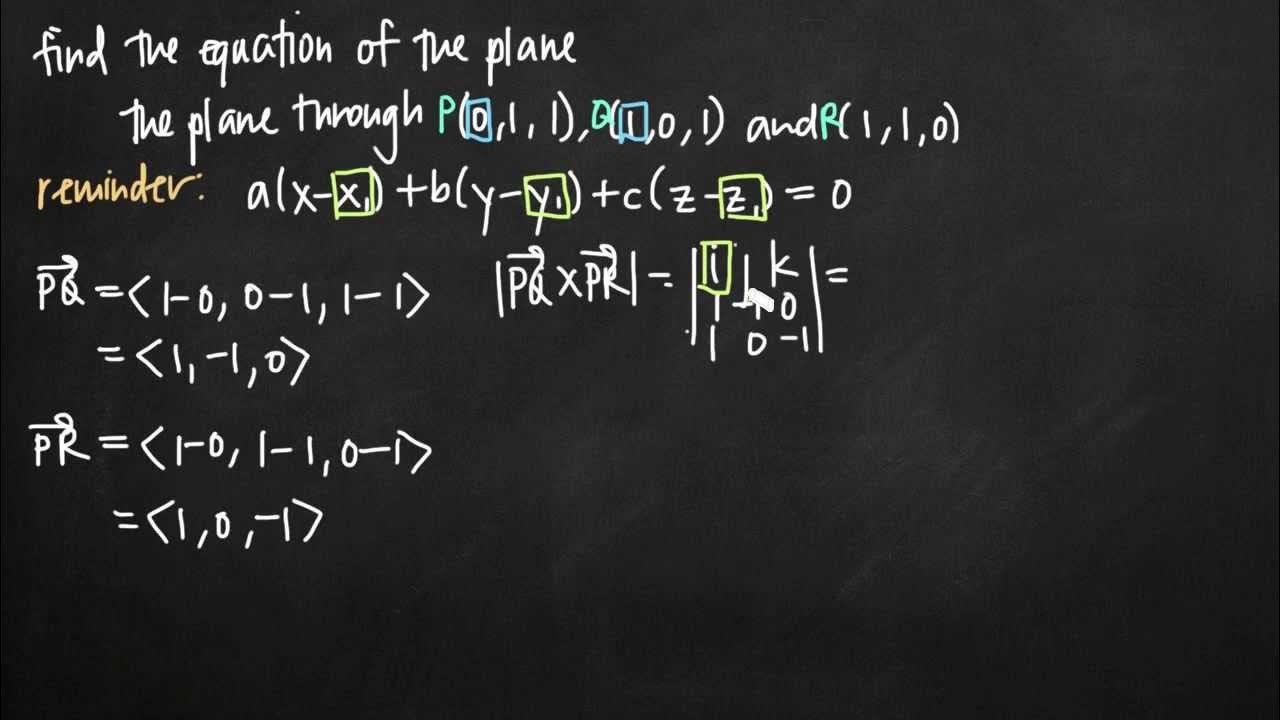 find the equation of the plane
the plane through P(0,1,1), Q(1,0,1) and R(1,1,0)
reminder: a(x-x₁)+b(y-y₁)+c(z-z₁)=0
PQ⃗ = <1-0, 0-1, 1-1>
= <1,-1,0>
PR⃗ = <1-0, 1-1, 0-1>
= <1,0,-1>
|PQ⃗ × PR⃗| = | i j k | =
1 -1 0
1 0 -1